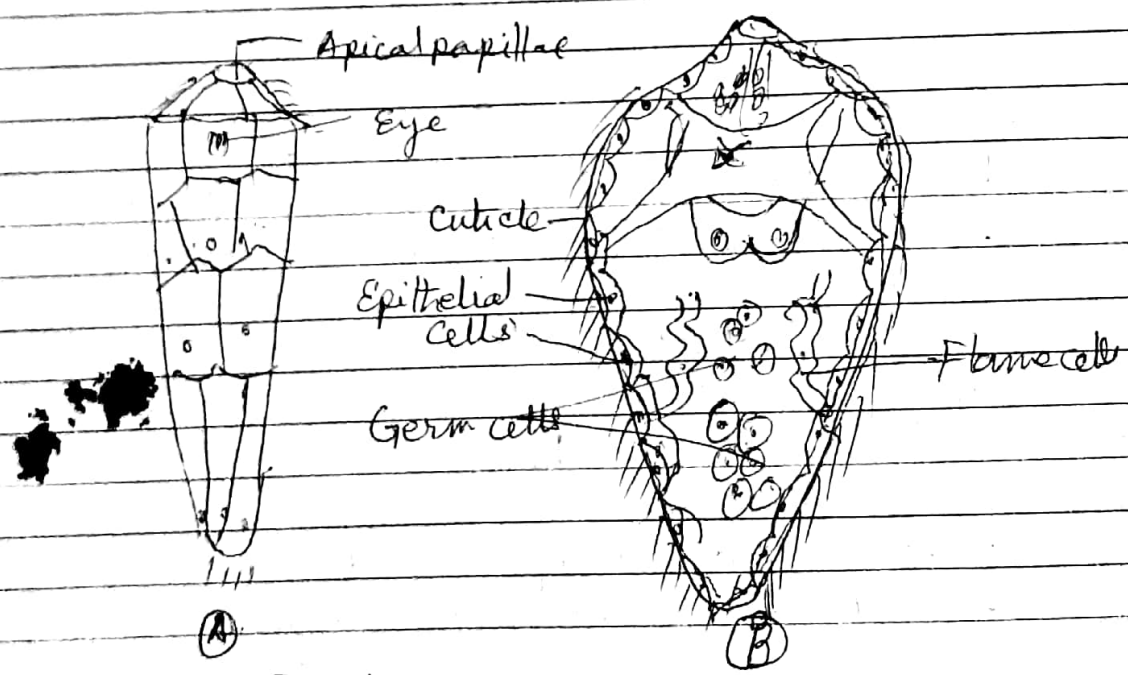 Apical papillae
Eye
Cuticle
Epithelial
cells
Flame cells
Germ cells
A
B